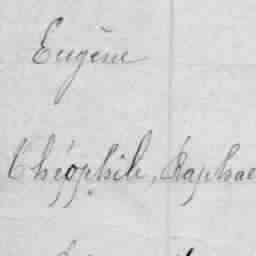 Eugène
Théophile, Raphae